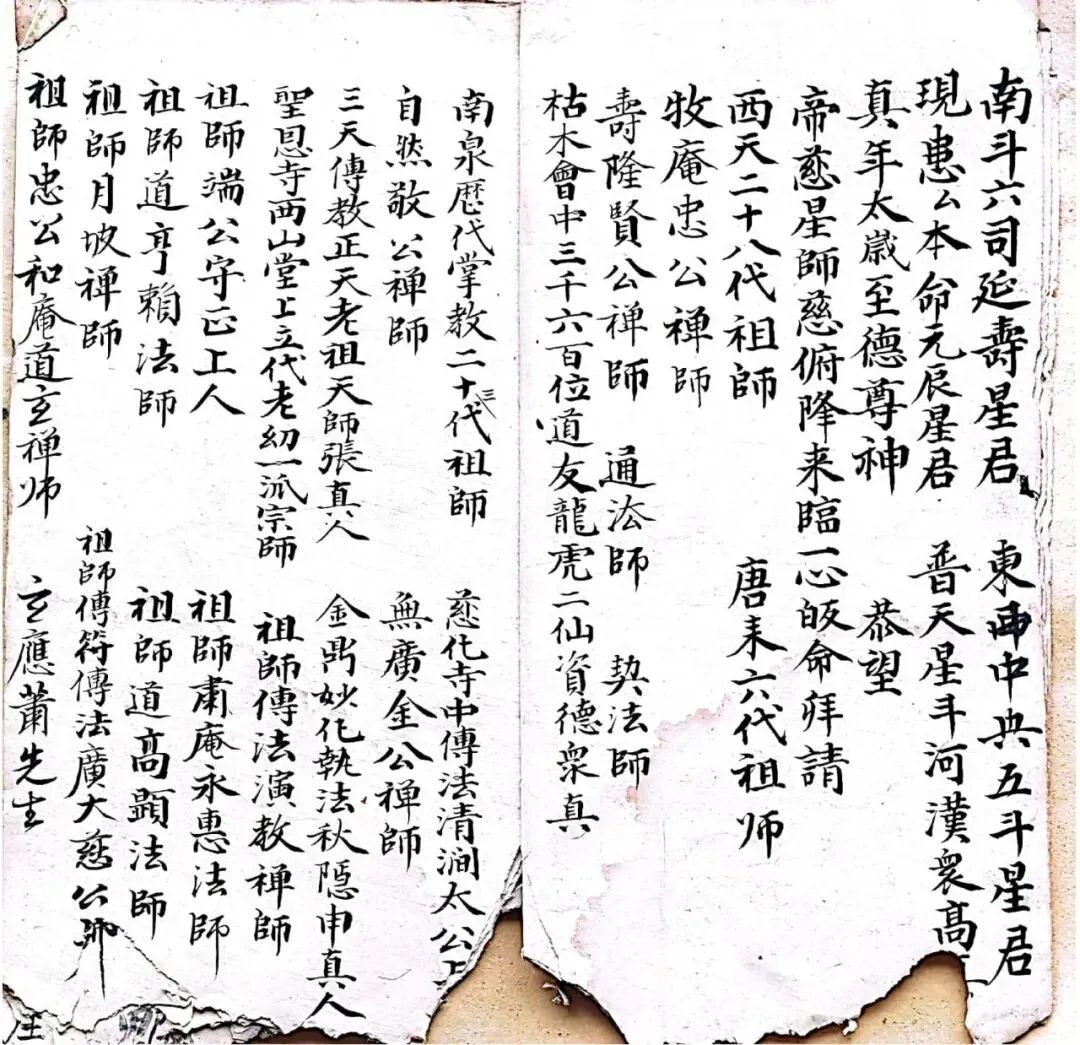 南斗六司延壽星君 東西中央五斗星君
現患厶本命元辰星君 普天星斗河漢衆高
真年太歲至德尊神 恭望
帝慈星師慈俯降来臨一心皈命拜請
西天二十八代祖師 唐来六代祖师
牧庵忠公禅師
壽隆賢公禅師 通法師 契法師
枯木會中三千六百位道友龍虎二仙資德衆真
南泉歷代掌教二十三代祖師 慈化寺中傳法清澗太公上
自然敬公禅師 無廣金公禅師
三天傳教正天老祖天師張真人 金鼎妙化執法秋隱申真人
聖恩寺西山堂上立代老幼一派宗師 祖師傳法演教禅師
祖師端公守正上人 祖師肅庵永惠法師
祖師道亨賴法師 祖師道高顕法師
祖師月坡禅師 祖師傳符傳法廣大慈公師
祖師忠公和庵道玄禅师 玄應蕭先生